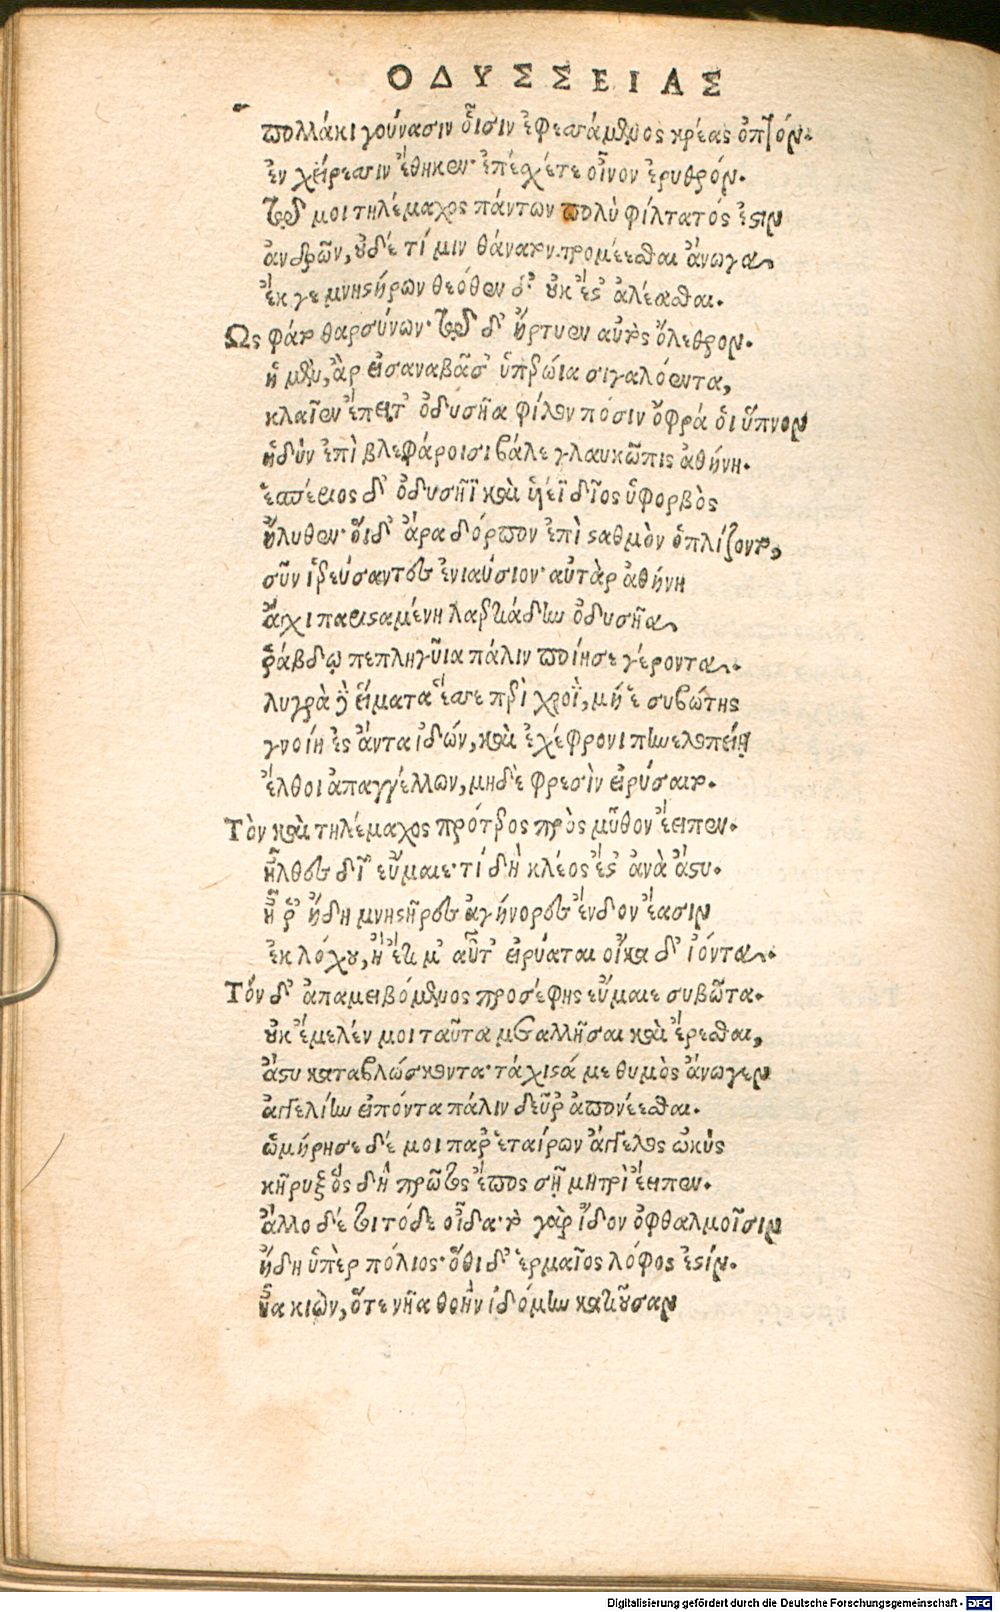 ΟΔΥΣΣΕΙΑΣ
πολλάκι γούνασιν οἷσιν ἐφεσσάμενος κρέας ὀπτόν·
ἐν χείρεσσιν ἔθηκεν· ἐπέσχέτε οἶνον ἐρυθρόν.
τῷ μοι τηλέμαχος πάντων πολὺ φίλτατός ἐστιν
ἀνδρῶν, οὐδέ τί μιν θάνατον προμέεσθαι ἄνωγα,
ἐκ γε μνηστήρων θεόθεν δ' οὐκ ἔστ' ἀλέασθαι.
Ὣς φάτο θαρσύνων· τῷ δ' ἤρτυεν αὐτὸς ὄλεθρον.
ἡ μὲν, ἂρ εἰσαναβᾶσ' ὑπερώια σιγαλόεντα,
κλαῖεν ἔπειτ' ὀδυσῆα φίλον πόσιν ὄφρά οἱ ὕπνον
ἡδὺν ἐπὶ βλεφάροισι βάλε γλαυκῶπις ἀθήνη.
ἑσπέριος δ' ὀδυσῆϊ καὶ υἱέϊ δῖος ὑφορβὸς
ἤλυθεν· οἵδ' ἄρα δόρπον ἐπὶ σταθμὸν ὁπλίζοντο,
σῦν ἱερεύσαντες ἐνιαύσιον· αὐτὰρ ἀθήνη
ἄγχι παρισταμένη λαερτιάδην ὀδυσῆα,
ῥάβδῳ πεπληγῦια πάλιν ποίησε γέροντα.
λυγρὰ δὲ εἵματα ἕσσε περὶ χροῒ, μή ἑ συβώτης
γνοίη ἐς ἄντα ἰδών, καὶ ἐχέφρονι πηνελοπείῃ
ἔλθοι ἀπαγγέλλων, μηδὲ φρεσὶν εἰρύσαιτο.
Τὸν καὶ τηλέμαχος πρότερος πρὸς μῦθον ἔειπεν.
ἦλθες δῖ' εὔμαιε· τί δὴ κλέος ἔστ' ἀνὰ ἄστυ.
ἦ ῥ' ἤδη μνηστῆρες ἀγήνορες ἔνδον ἔασιν
ἐκ λόχου, ἢ ἔτι μ' αὖτ' εἰρύαται οἴκαδ' ἰόντα.
Τὸν δ' ἀπαμειβόμενος προσέφης εὔμαιε συβῶτα.
οὐκ ἔμελέν μοι ταῦτα μεταλλῆσαι καὶ ἔρεσθαι,
ἄστυ καταβλώσκοντα· τάχιστά με θυμὸς ἄνωγεν
ἀγγελίην εἰπόντα πάλιν δεῦρ' ἀπονέεσθαι.
ὡμήρησε δέ μοι παρ' ἑταίρων ἄγγελος ὠκὺς
κῆρυξ ὃς δὴ πρῶτος ἔπος σῇ μητρὶ ἔειπεν.
ἄλλο δέ τοι τόδε οἶδα· τὸ γὰρ ἴδον ὀφθαλμοῖσιν
ἤδη ὑπὲρ πόλιος· ὅθι δ' ἑρμαῖος λόφος ἐστίν.
ἦα κιὼν, ὅτε νῆα θοὴν ἰδόμην κατιοῦσαν
Digitalisierung gefördert durch die Deutsche Forschungsgemeinschaft - DFG